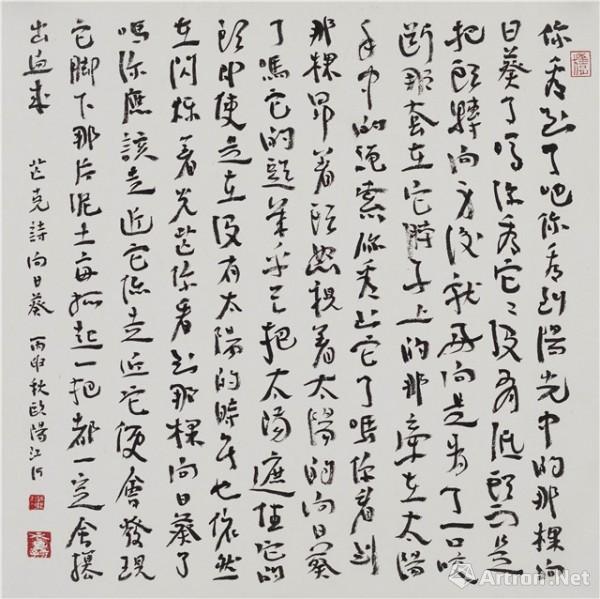 你看到了吧你看到陽光中的那棵向
日葵了嗎你看它它沒有低頭而是
把頭轉向身後就是為了一口咬
斷那套在它脖子上的那牽在太陽
手中的繩索你看到它了嗎你看到
那棵昂着頭怒視着太陽的向日葵
了嗎它的頭幾乎已把太陽遮住它的
頭即便是在沒有太陽的時候也依然
在閃爍着光芒你看到那棵向日葵了
嗎你應該走近它你走近它便會發現
它脚下那片泥土每抓起一把都一定會攥
出血來 芒克詩向日葵 丙申秋歐陽江河
雅昌艺术网
Artron.Net